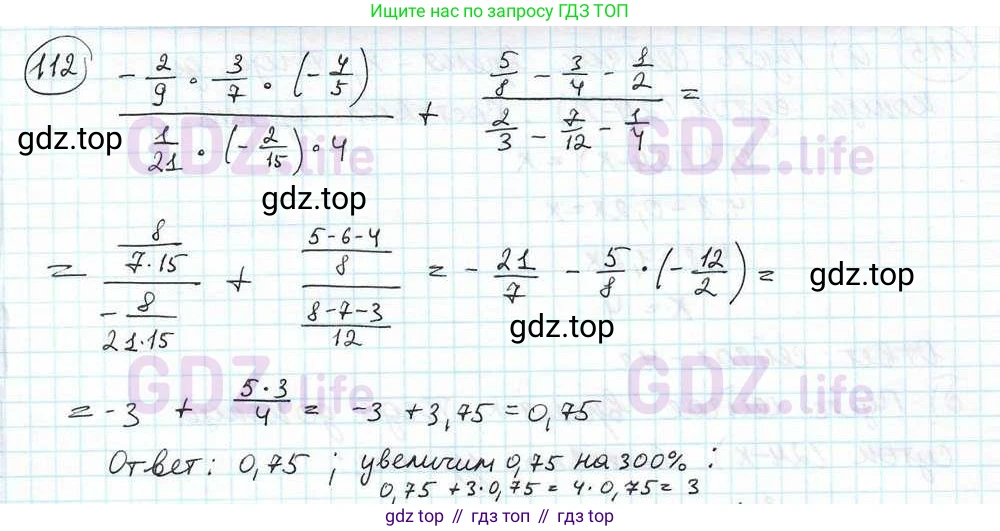 Ищите по запросу ГДЗ ТОП
112
(-2/9 · 3/7 · (-4/5)) / (1/21 · (-2/15) · 4) + (5/8 - 3/4 - 1/2) / (2/3 - 7/12 - 1/4) =
gdz.top
GDZ.life GDZ.life
gdz.top
= (8/(7·15)) / (-8/(21·15)) + ((5-6-4)/8) / ((8-7-3)/12) = -21/7 - 5/8 · (-12/2) =
gdz.top
gdz.top
GDZ.life GDZ.life
= -3 + (5·3)/4 = -3 + 3,75 = 0,75
Ответ: 0,75 ; увеличим 0,75 на 300% :
0,75 + 3·0,75 = 4·0,75 = 3
gdz.top // gdz.top // gdz.top